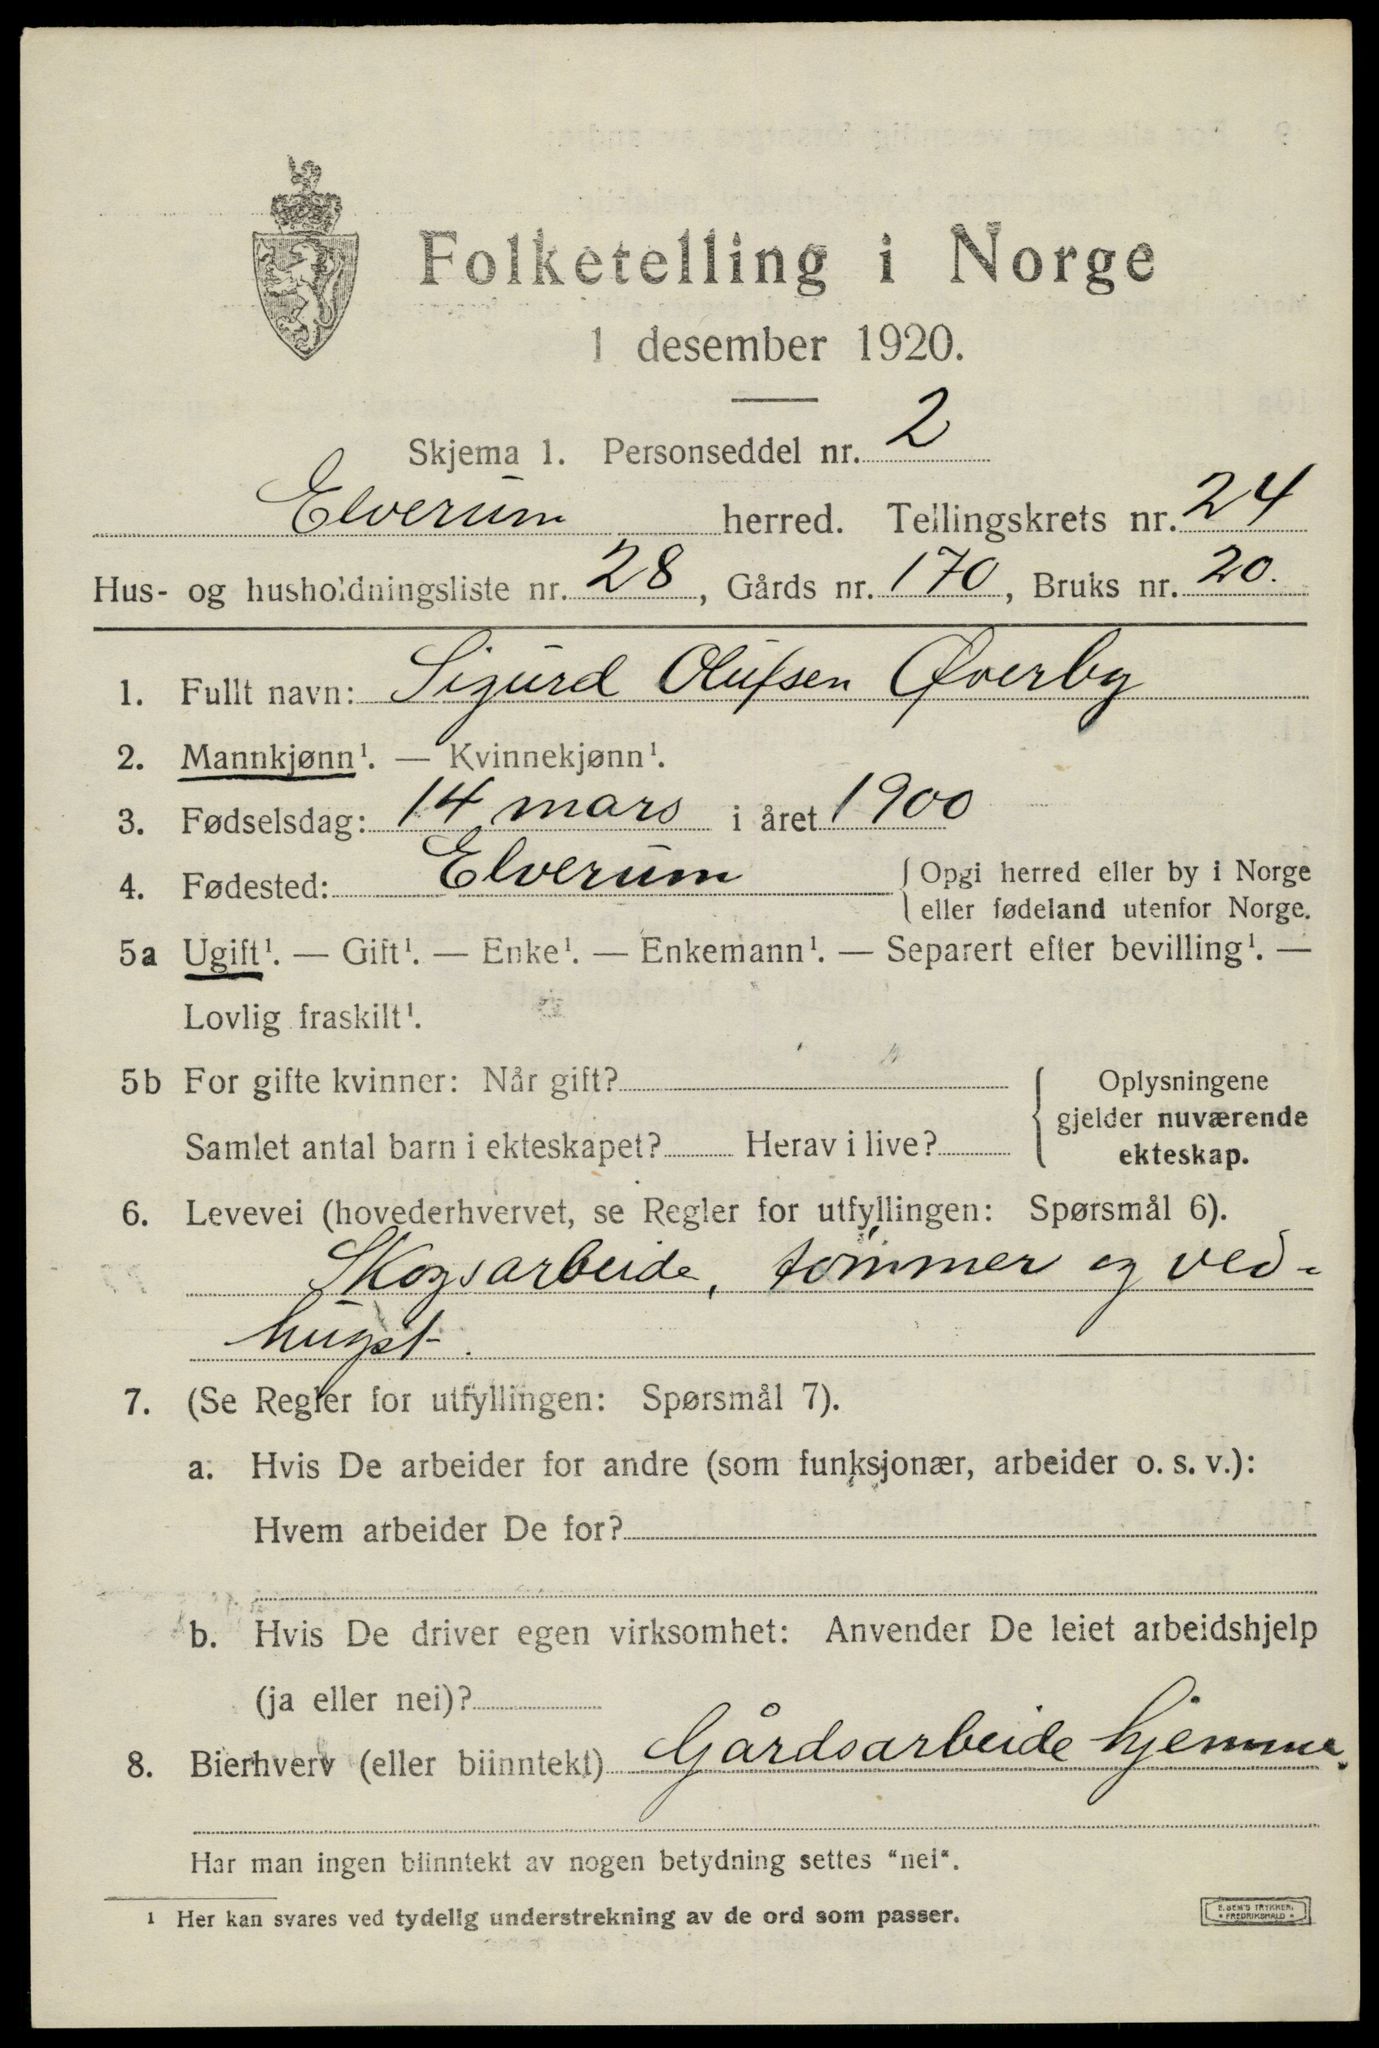 Folketelling i Norge
1 desember 1920.
Skjema 1. Personseddel nr. 2
Elverum herred. Tellingskrets nr. 24
Hus- og husholdningsliste nr. 28, Gårds nr. 170, Bruks nr. 20.
1. Fullt navn: Sigurd Olufsen Øverby
2. Mannkjønn¹. — Kvinnekjønn¹.
3. Fødselsdag: 14 mars i året 1900
4. Fødested: Elverum { Opgi herred eller by i Norge
eller fødeland utenfor Norge.
5a Ugift¹. — Gift¹. — Enke¹. — Enkemann¹. — Separert efter bevilling¹. —
Lovlig fraskilt¹.
5b For gifte kvinner: Når gift?
Samlet antal barn i ekteskapet? Herav i live?
Oplysningene
gjelder nuværende
ekteskap.
6. Levevei (hovederhvervet, se Regler for utfyllingen: Spørsmål 6).
Skogsarbeide, tømmer og ved-
hugst.
7. (Se Regler for utfyllingen: Spørsmål 7).
a. Hvis De arbeider for andre (som funksjonær, arbeider o. s. v.):
Hvem arbeider De for?
b. Hvis De driver egen virksomhet: Anvender De leiet arbeidshjelp
(ja eller nei)?
8. Bierhverv (eller biinntekt) Gårdsarbeide hjemme.
Har man ingen biinntekt av nogen betydning settes "nei".
¹ Her kan svares ved tydelig understrekning av de ord som passer.
E. SEM'S TRYKKERI
FREDRIKSHALD